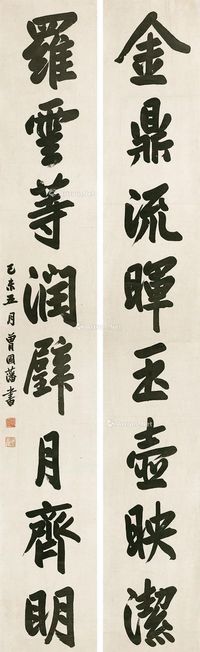 金鼎流暉玉壺映潔
羅雲等潤璧月齊明
己未五月曾國藩書